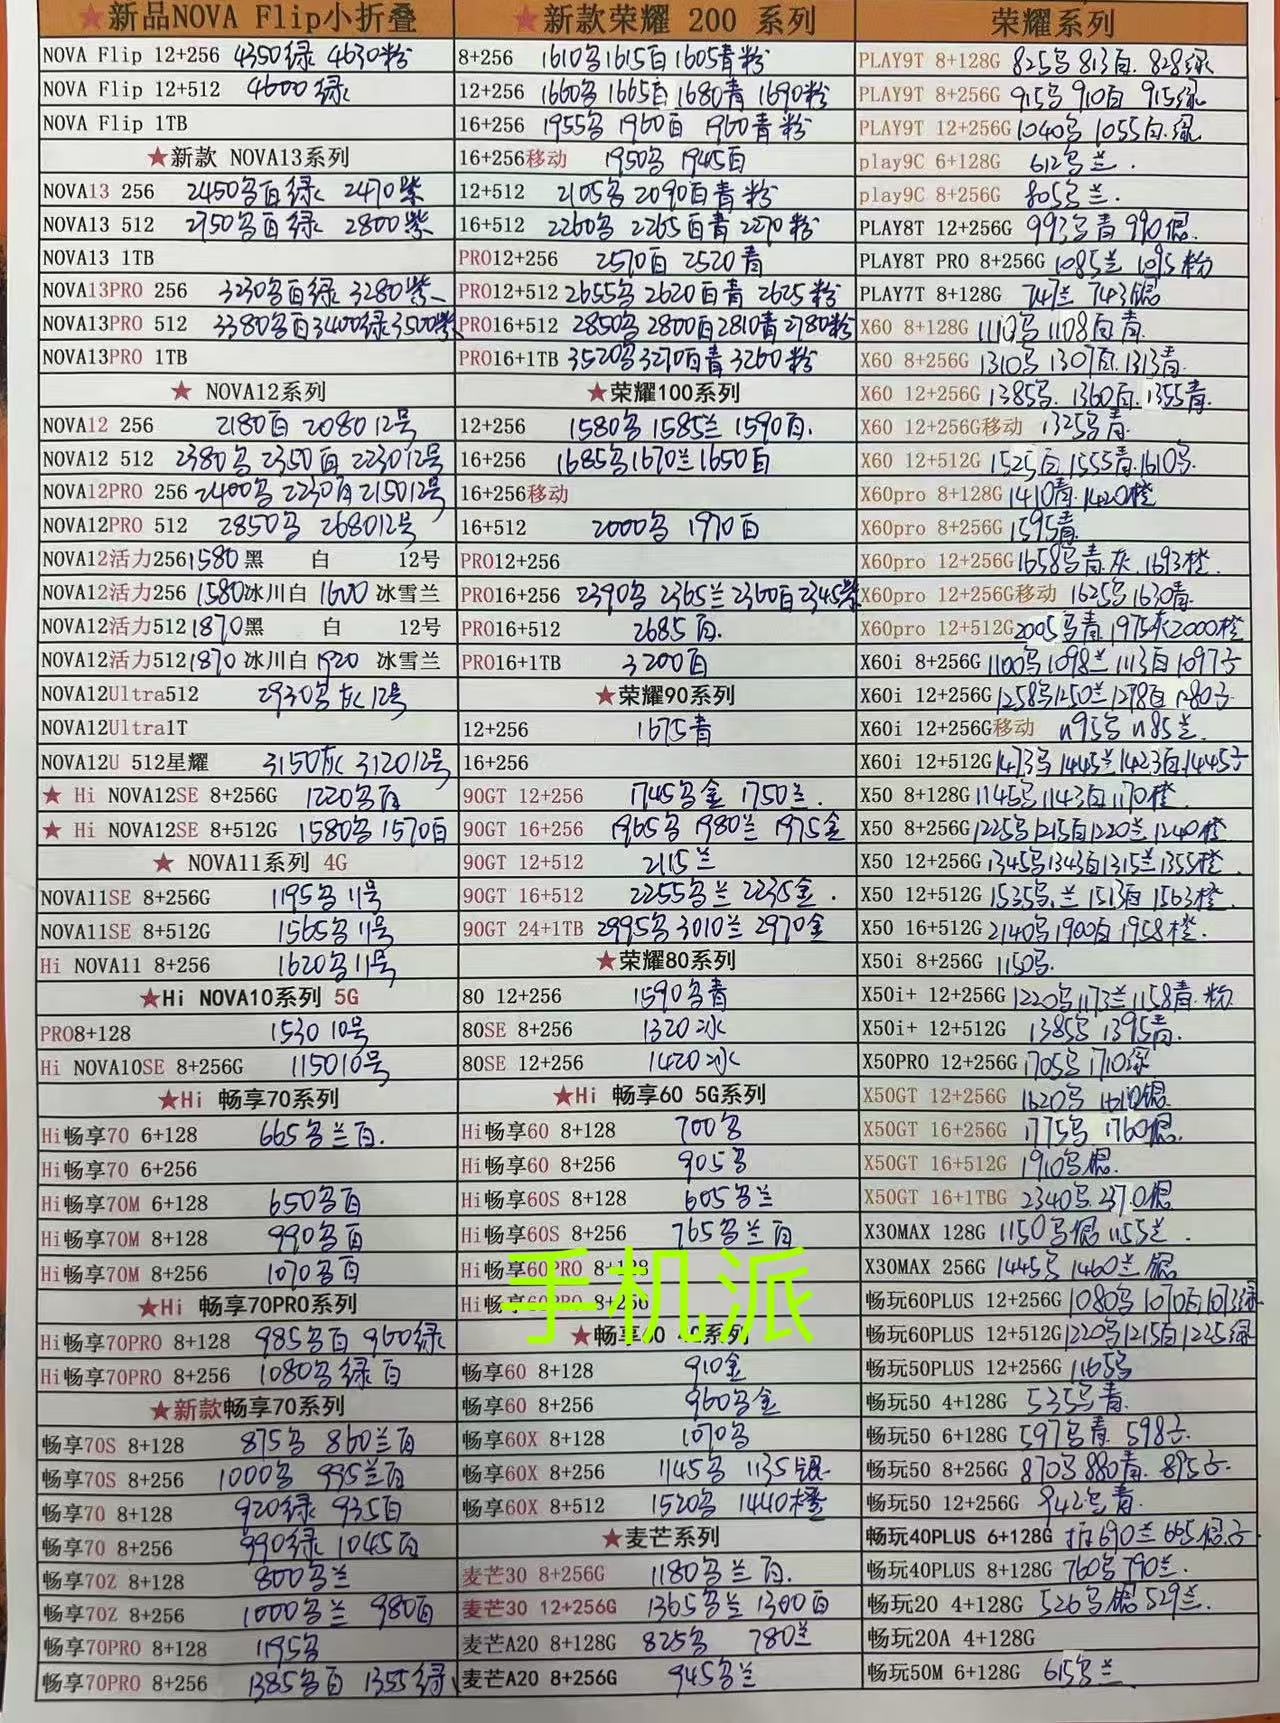 ★新品NOVA Flip小折叠
NOVA Flip 12+256 4350绿 4630粉
NOVA Flip 12+512 4600绿
NOVA Flip 1TB
★新款 NOVA13系列
NOVA13 256 2450乌白绿 2470紫
NOVA13 512 2750白绿 2800紫
NOVA13 1TB
NOVA13PRO 256 3230乌白绿 3280紫
NOVA13PRO 512 3380乌白3400绿3500紫
NOVA13PRO 1TB
★ NOVA12系列
NOVA12 256 2180白 2080 12号
NOVA12 512 2380乌 2350白 2230 12号
NOVA12PRO 256 2400乌 2230白 2150 12号
NOVA12PRO 512 2850乌 2680 12号
NOVA12活力256 1580 黑 白 12号
NOVA12活力256 1580冰川白 1600 冰雪兰
NOVA12活力512 1870黑 白 12号
NOVA12活力512 1870 冰川白 1920 冰雪兰
NOVA12Ultra512 2930乌灰12号
NOVA12Ultra1T
NOVA12U 512星耀 3150灰 3120 12号
★ Hi NOVA12SE 8+256G 1220乌白
★ Hi NOVA12SE 8+512G 1580乌 1570白
★ NOVA11系列 4G
NOVA11SE 8+256G 1195乌 11号
NOVA11SE 8+512G 1565乌 11号
Hi NOVA11 8+256 1620乌 11号
★Hi NOVA10系列 5G
PRO8+128 1530 10号
Hi NOVA10SE 8+256G 1150 10号
★Hi 畅享70系列
Hi畅享70 6+128 665乌兰白.
Hi畅享70 6+256
Hi畅享70M 6+128 650乌白
Hi畅享70M 8+128 990乌白
Hi畅享70M 8+256 1070乌白
★Hi 畅享70PRO系列
Hi畅享70PRO 8+128 985乌白 960绿
Hi畅享70PRO 8+256 1080乌绿白
★新款畅享70系列
畅享70S 8+128 875乌 860兰白
畅享70S 8+256 1000乌 995兰白
畅享70 8+128 920绿 935白
畅享70 8+256 990绿 1045白
畅享70Z 8+128 800乌兰
畅享70Z 8+256 1000乌兰 980白
畅享70PRO 8+128 1195乌
畅享70PRO 8+256 1385乌白 1355绿
★新款荣耀 200 系列
8+256 1610乌1615白1605青粉
12+256 1660乌 1665白 1680青 1690粉
16+256 1955乌 1960白 1960青粉
16+256移动 1950乌 1945白
12+512 2105乌 2090白青粉
16+512 2260乌 2265白青 2270粉
PRO12+256 2570白 2520青
PRO12+512 2655乌 2620白青 2625粉
PRO16+512 2850乌2800白2810青2780粉
PRO16+1TB 3520乌3270白青3260粉
★荣耀100系列
12+256 1580乌 1585兰 1590白.
16+256 1685乌1670兰1650白
16+256移动
16+512 2000乌 1970白
PRO12+256
PRO16+256 2390乌 2365兰2360白2345紫
PRO16+512 2685白.
PRO16+1TB 3200白
★荣耀90系列
12+256 1675青
16+256
90GT 12+256 1745乌金 1750兰.
90GT 16+256 1965乌 1980兰 1975金
90GT 12+512 2115兰
90GT 16+512 2255乌兰 2235金.
90GT 24+1TB 2995乌 3010兰 2970金
★荣耀80系列
80 12+256 1590乌青
80SE 8+256 1320冰
80SE 12+256 1420冰
★Hi 畅享60 5G系列
Hi畅享60 8+128 700乌
Hi畅享60 8+256 905乌
Hi畅享60S 8+128 605乌兰
Hi畅享60S 8+256 765乌兰白
Hi畅享60PRO 8+128
Hi畅享60PRO 8+256
手机派
★畅享60 系列
畅享60 8+128 910金
畅享60 8+256 960乌金
畅享60X 8+128 1070乌
畅享60X 8+256 1145乌 1135银
畅享60X 8+512 1520乌 1440橙
★麦芒系列
麦芒30 8+256G 1180乌兰白.
麦芒30 12+256G 1365乌兰 1300白
麦芒A20 8+128G 825乌 780兰
麦芒A20 8+256G 945乌兰
荣耀系列
PLAY9T 8+128G 825乌 813白. 828绿
PLAY9T 8+256G 915乌 910白 915绿
PLAY9T 12+256G 1040乌 1055白.绿
play9C 6+128G 612乌兰.
play9C 8+256G 805乌兰.
PLAY8T 12+256G 993乌青 990银.
PLAY8T PRO 8+256G 1085兰 1095粉
PLAY7T 8+128G 747兰 743银
X60 8+128G 1110乌 1108白青.
X60 8+256G 1310乌 1307白.1313青.
X60 12+256G 1385乌. 1360白. 1355青.
X60 12+256G移动 1325乌青.
X60 12+512G 1525白.1555青.1610乌.
X60pro 8+128G 1410青.1420橙
X60pro 8+256G 1595青.
X60pro 12+256G 1658乌青.灰 1693橙.
X60pro 12+256G移动 1625乌1630青.
X60pro 12+512G 2005乌青. 1975灰2000橙
X60i 8+256G 1100乌1098兰1113白1097子
X60i 12+256G 1258乌1250兰1278白1280子
X60i 12+256G移动 1195乌 1185兰.
X60i 12+512G 1473乌1445兰1423白.1445子
X50 8+128G 1145乌1143白1170橙.
X50 8+256G 1225乌1215白1220兰1240橙
X50 12+256G 1345乌1343白1315兰1355橙
X50 12+512G 1535乌.兰 1513白 1563橙.
X50 16+512G 2140乌1900白1958橙.
X50i 8+256G 1150乌.
X50i+ 12+256G 1220乌1173兰1158青.粉
X50i+ 12+512G 1385乌 1395青.
X50PRO 12+256G 1705乌 1710绿
X50GT 12+256G 1620乌 1610银.
X50GT 16+256G 1775乌 1760银.
X50GT 16+512G 1910乌银.
X50GT 16+1TBG 2340乌.2370银
X30MAX 128G 1150乌银 1155兰.
X30MAX 256G 1445乌 1460兰 银
畅玩60PLUS 12+256G 1080乌 1070白1073绿
畅玩60PLUS 12+512G 1220乌1215白1225绿
畅玩50PLUS 12+256G 1165乌
畅玩50 4+128G 535乌青.
畅玩50 6+128G 597乌青. 598子
畅玩50 8+256G 870乌 880青. 895子.
畅玩50 12+256G 942乌青.
畅玩40PLUS 6+128G 690兰 665银子
畅玩40PLUS 8+128G 760乌790兰.
畅玩20 4+128G 526乌银529兰.
畅玩20A 4+128G
畅玩50M 6+128G 615乌兰